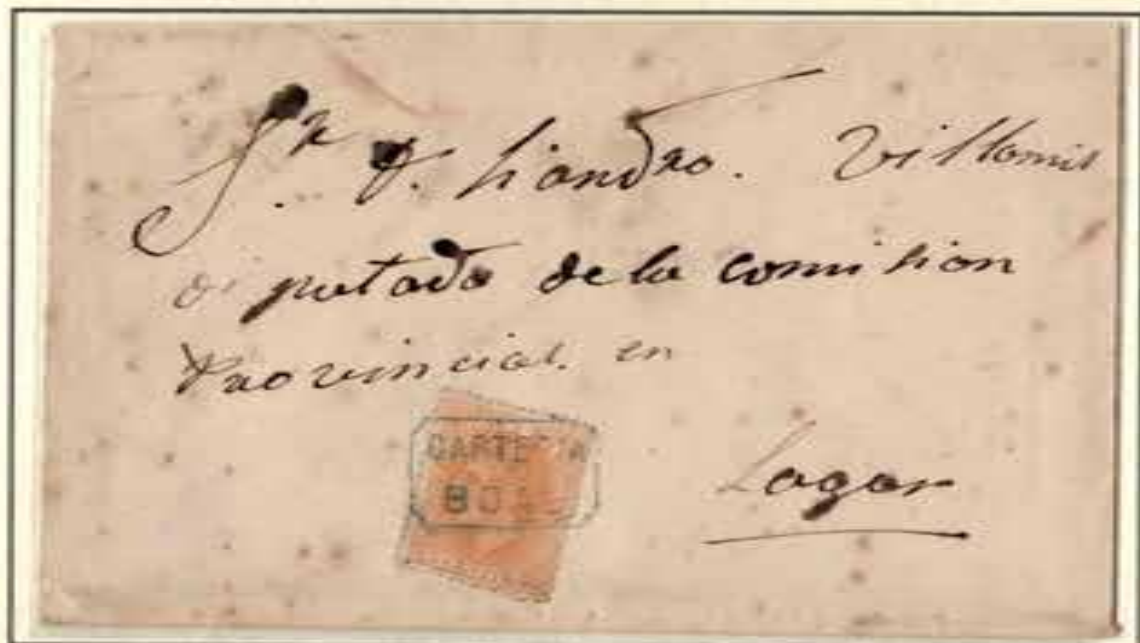 Sr. D. Liandro. Villamil
diputado de la comision
Provincial. en
CARTERIA
Logar